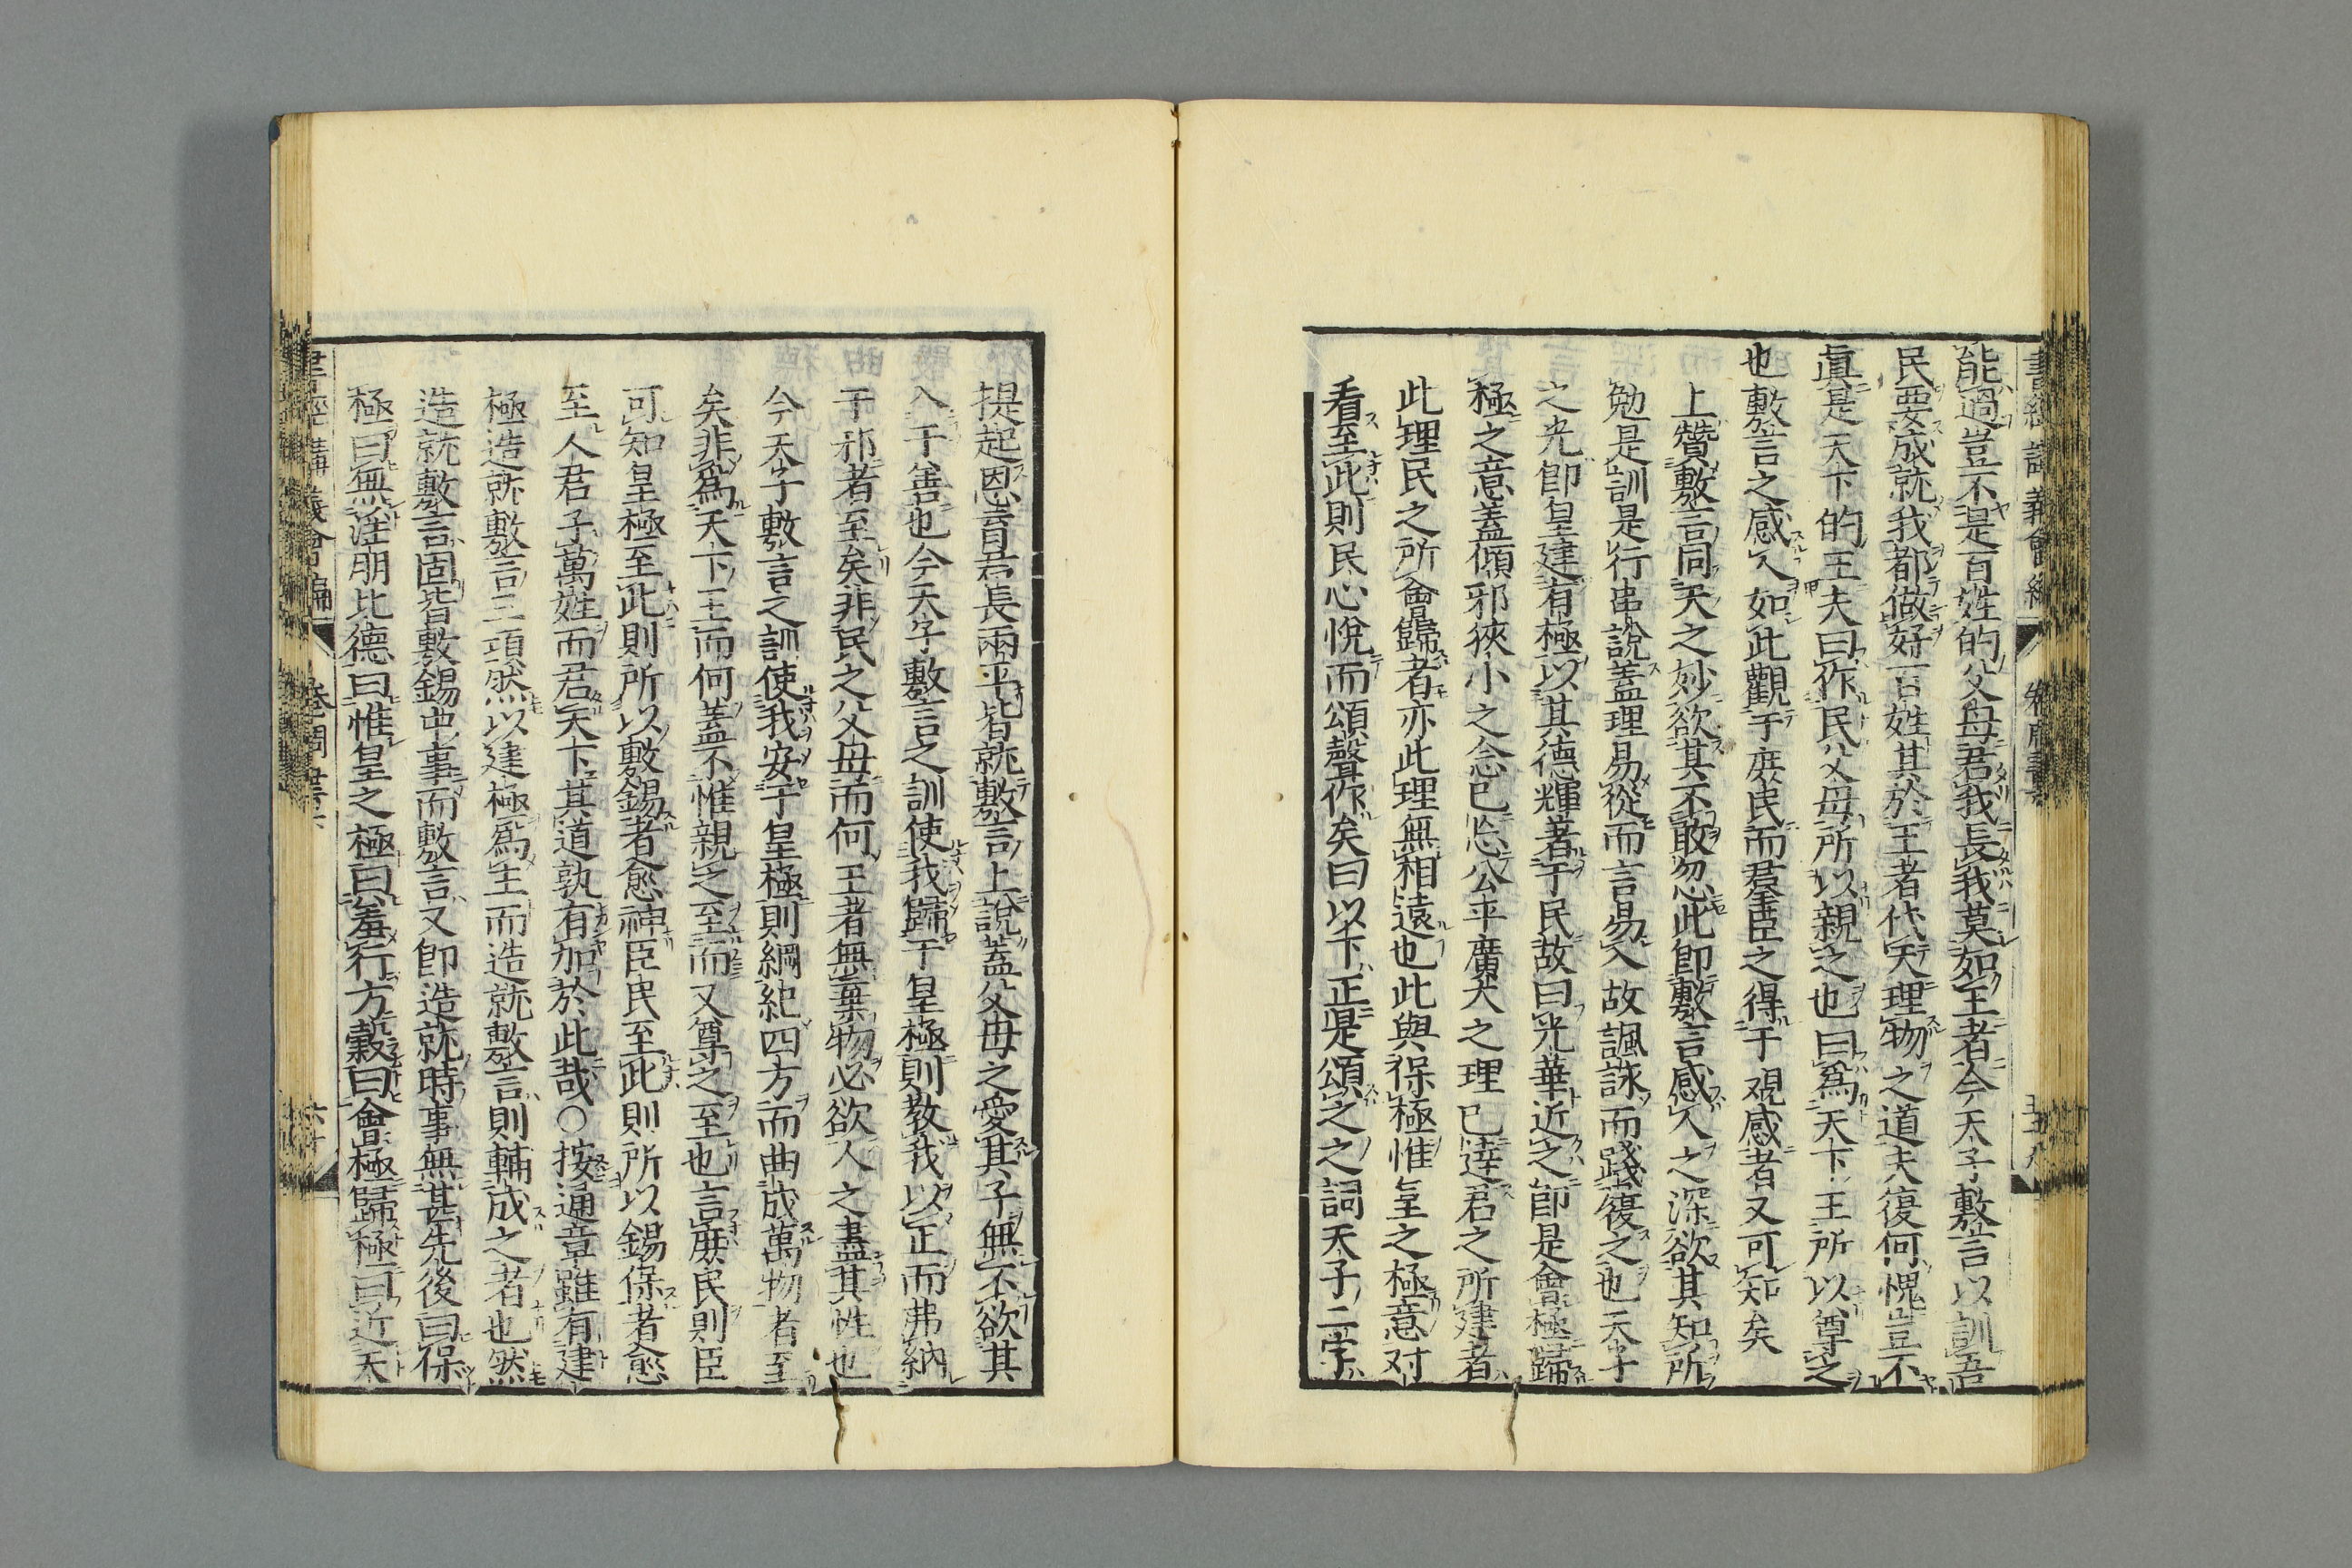 能過豈不是百姓的父母君我長我莫如王者今天子敷言以訓吾
民要成就我都做好百姓其於王者代天理物之道夫復何愧豈不
眞是天下的王夫曰作民父母所以親之也曰爲天下王所以尊之
也敷言之感人如此觀于庶民而君臣之得于観感者又可知矣
上贊敷言同天之妙欲其不敢忽此即敷言感人之深欲其知所
勉是訓是行串說蓋理易從而言易入故諷詠而踐履之也天子
之光即皇建有極以其德輝著于民故曰光華近之即是會極歸
極之意蓋傾邪狹小之念已忘公平廣大之理已達君之所建者
此理民之所會歸者亦此理無相遠也此與保極惟皇之極意对
看至此則民心悅而頌聲作矣曰以下正是頌之之詞天子二字
提起恩育君長兩平皆就敷言上說蓋父母之愛其子無不欲其
入于善也今天子敷言之訓使我歸于皇極則教我以正而弗納
于邪者至矣非民之父母而何王者無棄物必欲人之盡其性也
今天子敷言之訓使我安于皇極則綱紀四方而曲成萬物者至
矣非爲天下王而何蓋不惟親之至而又尊之至也言庶民則臣
可知皇極至此則所以敷錫者愈神臣民至此則所以錫保者愈
至人君子萬姓而君天下其道孰有加於此哉○按通章雖有建
極造就敷言三項然以建極爲主而造就敷言則輔成之者也然
造就敷言固皆敷錫中事而敷言又即造就時事無甚先後曰保
極曰無淫朋比德曰惟皇之極曰羞行方穀曰會極歸極曰近天
書經講義會編